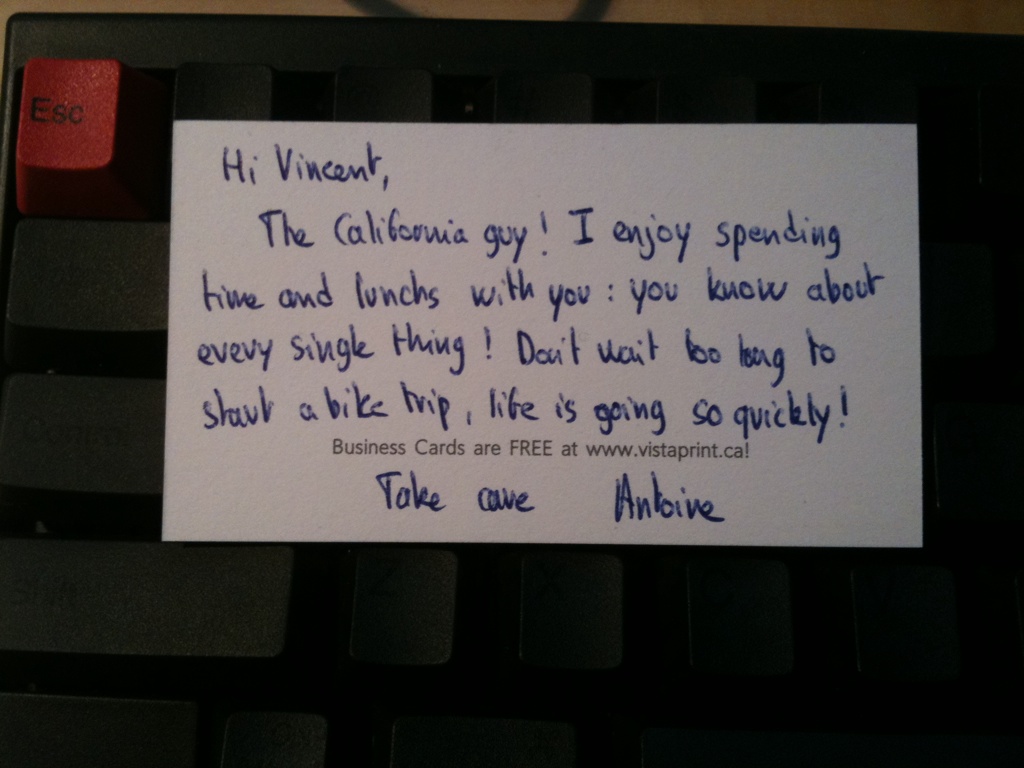 Esc
Hi Vincent,
The California guy! I enjoy spending
time and lunchs with you : you know about
every single thing! Don't wait too long to
start a bike trip, life is going so quickly!
Business Cards are FREE at www.vistaprint.ca!
Take care Antoine
Control
Shift
Z X C V